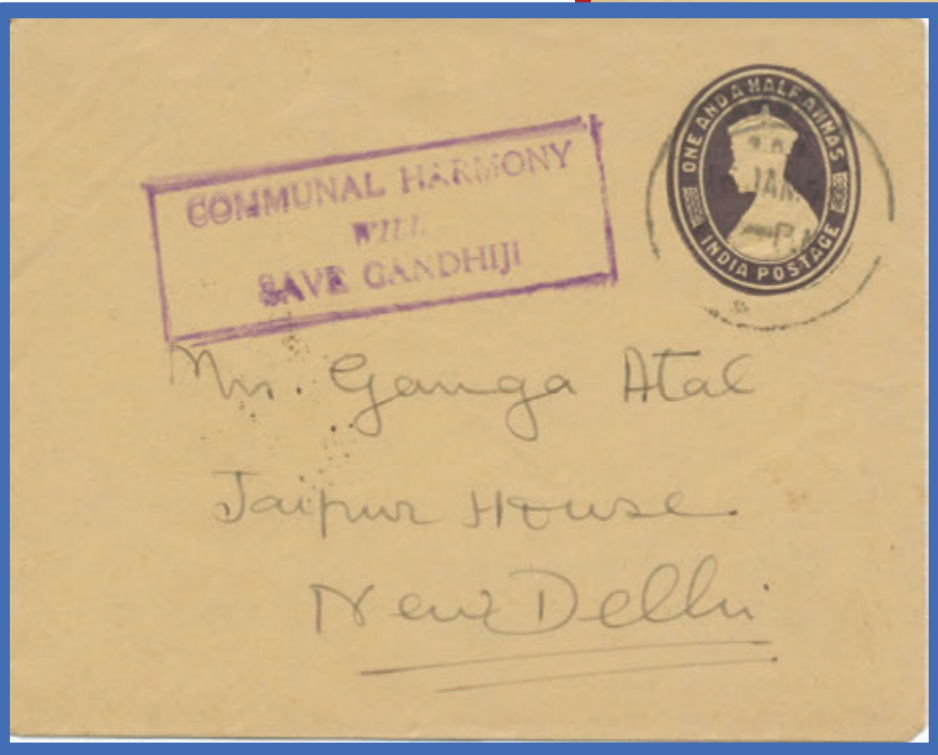 COMMUNAL HARMONY
WILL
SAVE GANDHIJI
ONE AND A HALF ANNAS
INDIA POSTAGE
JAN.
Mr. Ganga Atal
Jaipur House.
New Delhi